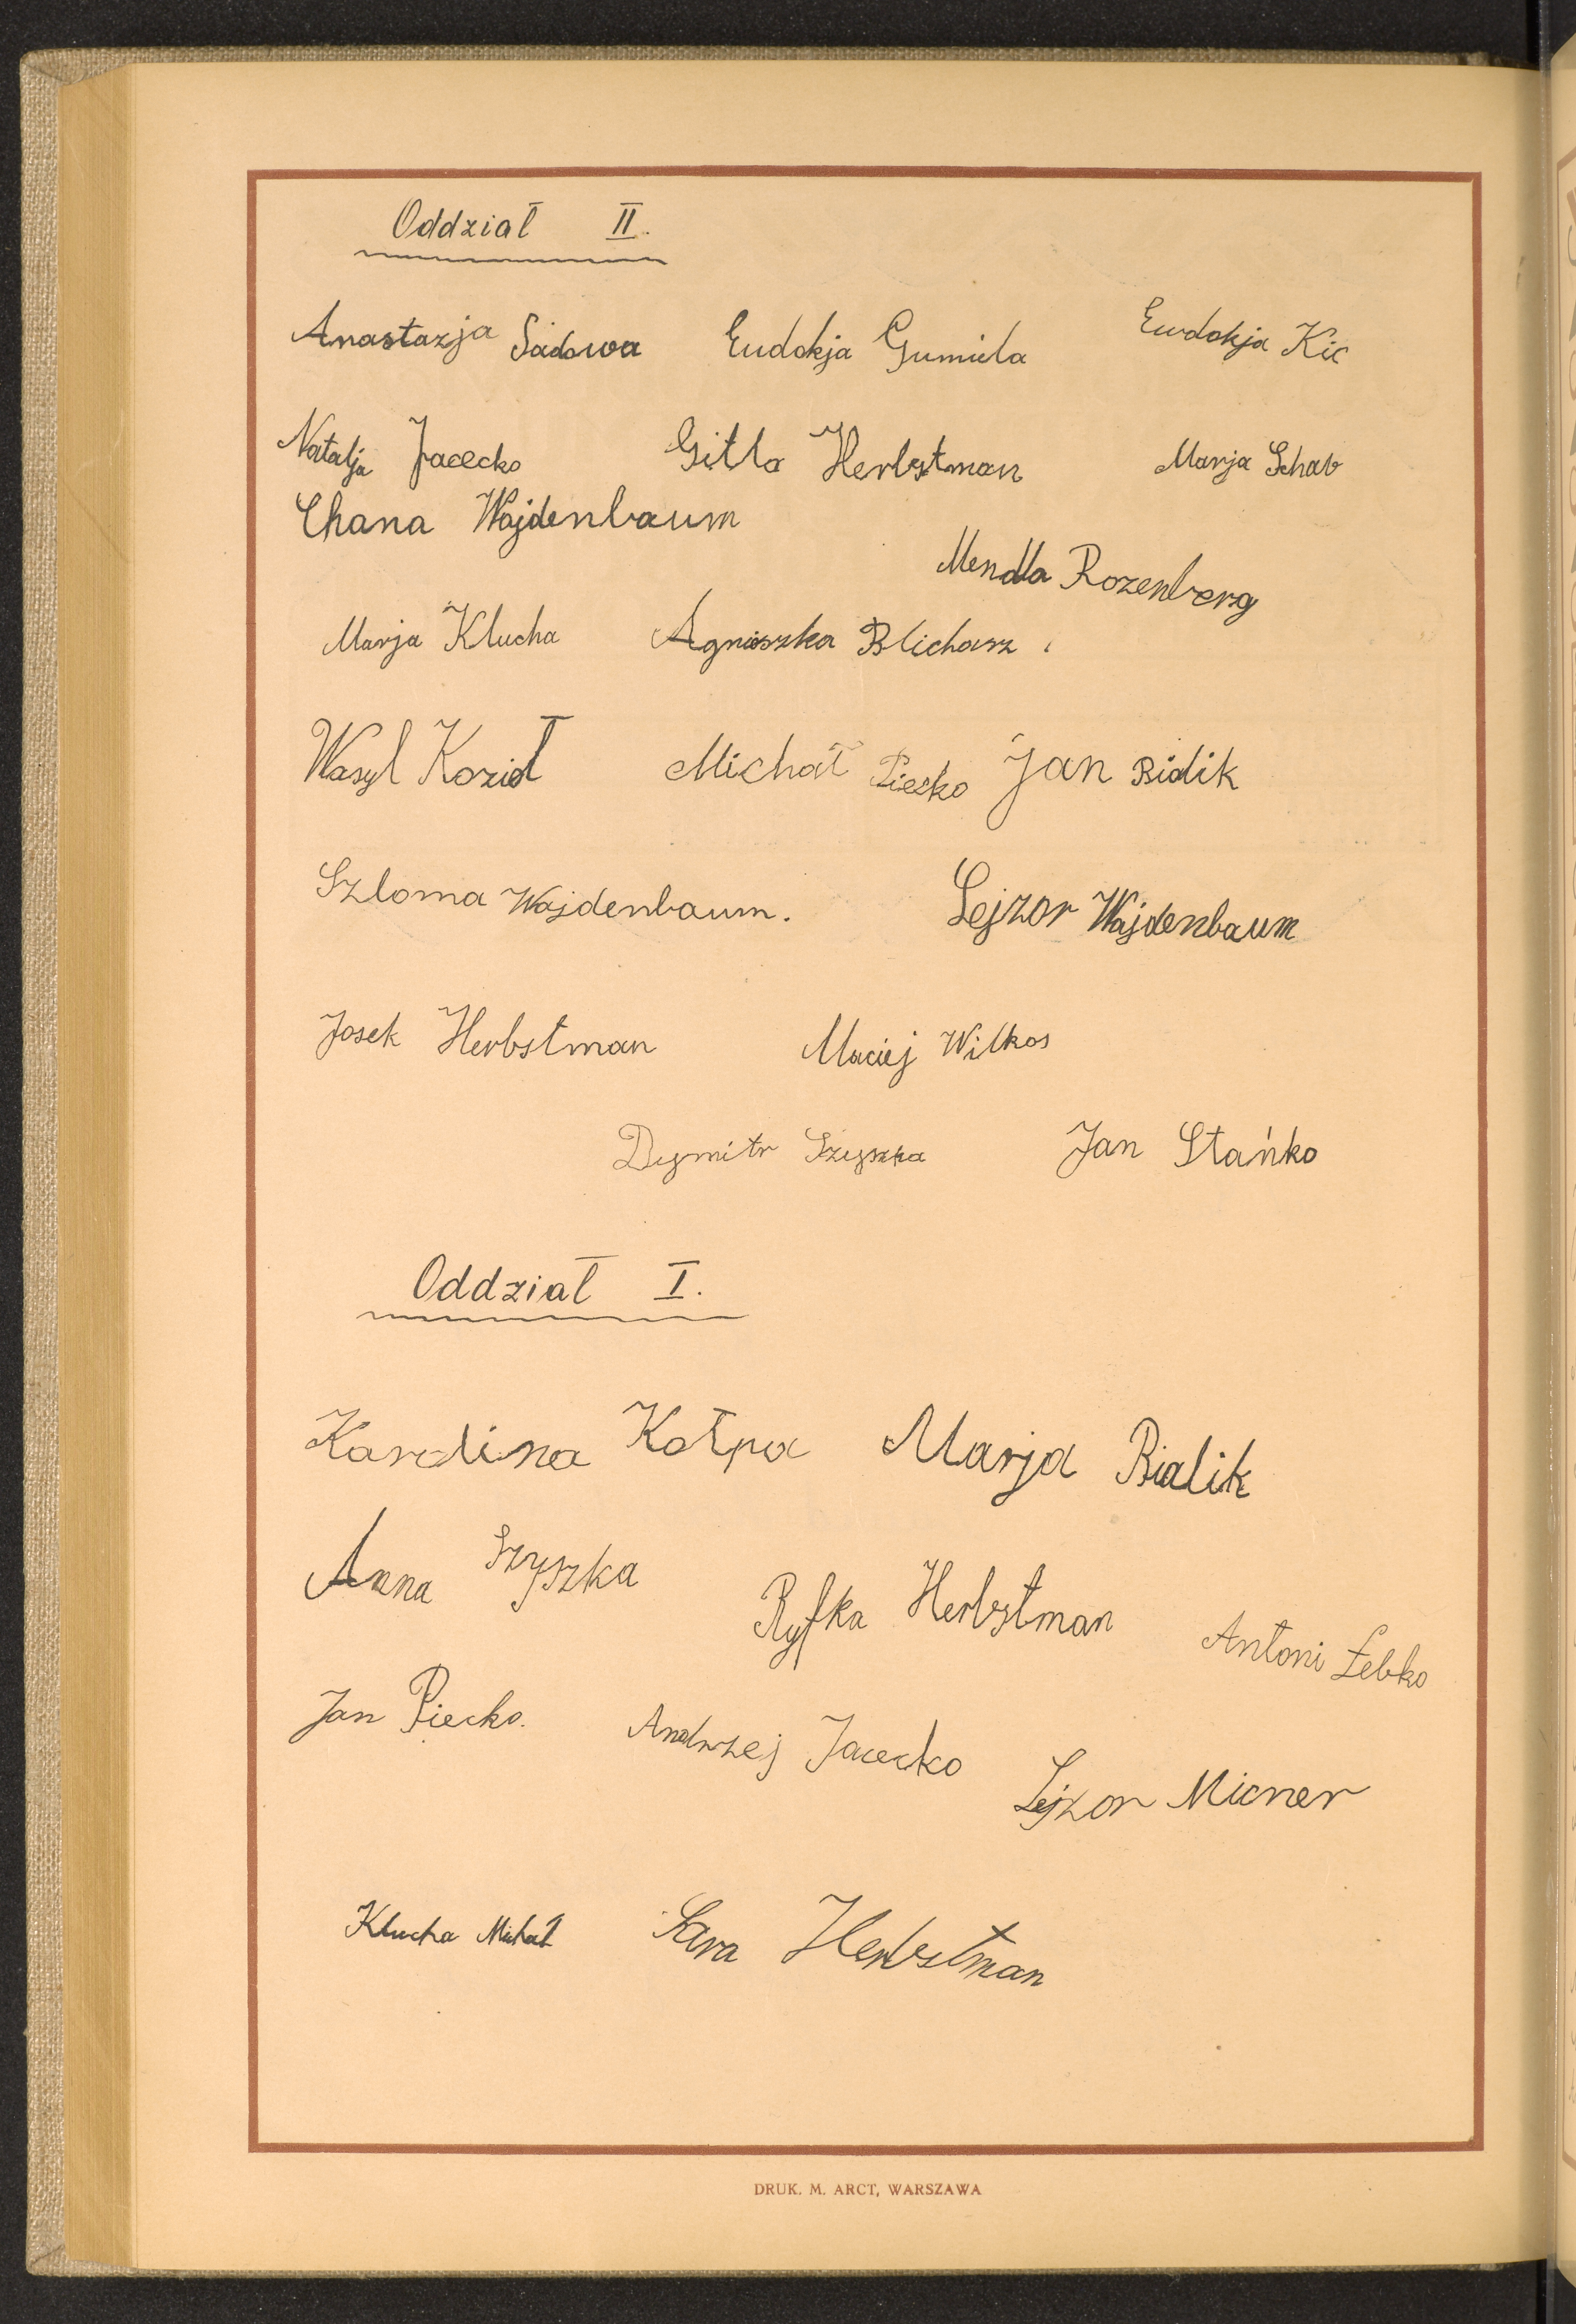 Oddział II.
Anastazja Sadowa Eudokja Gumiela Ewdokja Kic
Natalja Jacecko Gitla Herbstman Marja Schab
Chana Wajdenbaum
Mendla Rozenberg
Marja Klucha Agnieszka Blicharz
Wasyl Kozioł Michał Piecko Jan Bidik
Szloma Wajdenbaum. Lejzor Wajdenbaum
Josek Herbstman Maciej Wilkos
Dymitr Szyszka Jan Stańko
Oddział I.
Karolina Kołpa Marja Bialik
Anna Szyszka Ryfka Herbstman Antoni Łebko
Jan Piecko. Andrzej Jacecko Lejzor Micner
Klucha Michał Sara Herbstman
DRUK. M. ARCT, WARSZAWA